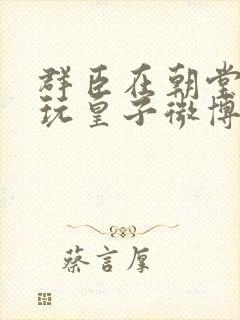 群臣在朝堂
玩皇子微博
蔡言厚